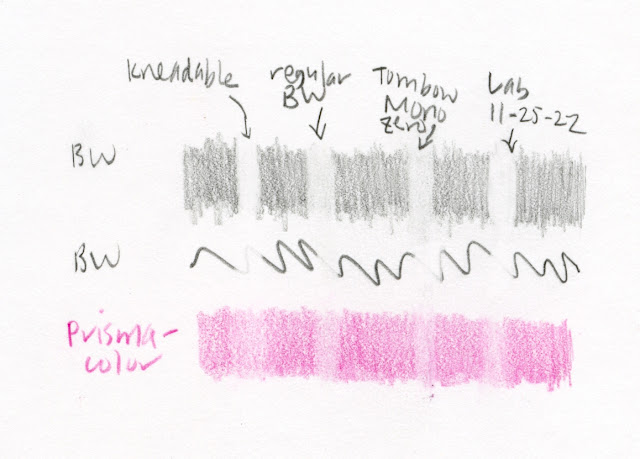 kneadable
regular
BW
Tombow
Mono
zero
Lab
11-25-22
BW
BW
Prisma-
color